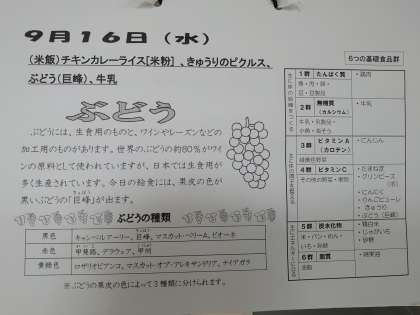 9月16日（水）
（米飯）チキンカレーライス[米粉]、きゅうりのピクルス、
ぶどう（巨峰）、牛乳
ぶどう
ぶどうには、生食用のものと、ワインやレーズンなどの
加工用のものがあります。世界のぶどうの約80%がワイ
ンの原料として使われていますが、日本では生食用が
多く生産されています。今日の給食には、果皮の色が
黒いぶどうの「巨峰」が出ます。
ぶどうの種類
黒色 キャンベルアーリー、巨峰、マスカット・ベリーA、ピオーネ
赤色 甲斐路、デラウェア、甲州
黄緑色 ロザリオビアンコ、マスカット・オブ・アレキサンドリア、ナイアガラ
※ぶどうの果皮の色によって3種類に分けられます。
6つの基礎食品群
1群 たんぱく質
魚・肉・卵・
豆・豆製品
・鶏肉
2群 無機質
（カルシウム）
牛乳・乳製品・
小魚・海そう
・牛乳
3群 ビタミンA
（カロテン）
緑黄色野菜
・にんじん
4群 ビタミンC
その他の野菜・果物
・たまねぎ
・グリンピース
・にんにく
・りんごピューレ
・きゅうり
・ぶどう（巨峰）
5群 炭水化物
米・パン・めん・
いも・砂糖
・精白米
・じゃがいも
・砂糖
6群 脂質
油脂